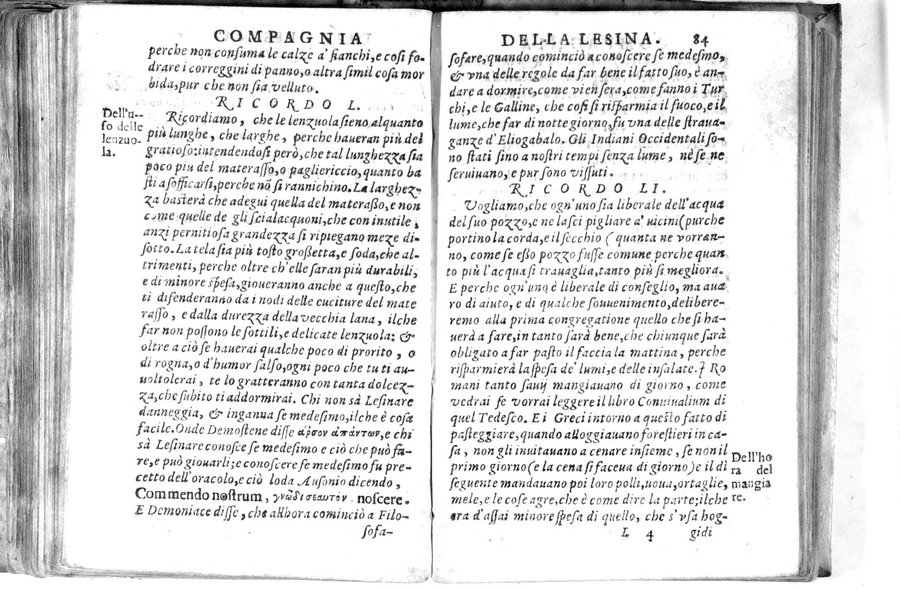 COMPAGNIA
perche non consuma le calze a' fianchi, e cosi fo-
drare i correggini di panno, o altra simil cosa mor
bida, pur che non sia velluto.
RICORDO L.
Dell'u-
so delle
lenzuo-
la.
Ricordiamo, che le lenzuola sieno alquanto
più lunghe, che larghe, perche haueran più del
gratioso: intendendosi però, che tal lunghezza sia
poco piu del materasso, o pagliericcio, quanto ba
sti a sofficarsi, perche nõ si rannichino. La larghez-
za basterà che adegui quella del materasso, e non
come quelle de gli scialacquoni, che con inutile,
anzi pernitiosa grandezza si ripiegano meze di-
sotto. La tela sia più tosto grossetta, e soda, che al-
trimenti, perche oltre ch'elle saran più durabili,
e di minore spesa, gioueranno anche a questo, che
ti difenderanno da i nodi delle cuciture del mate
rasso, e dalla durezza della vecchia lana, ilche
far non possono le sottili, e delicate lenzuola: &
oltre a ciò se hauerai qualche poco di prorito, o
di rogna, o d'humor salso, ogni poco che tu ti au-
uoltolerai, te lo gratteranno con tanta dolcez-
za, che subito ti addormirai. Chi non sà Lesinare
danneggia, & inganna se medesimo, ilche è cosa
facile. Onde Demostene disse ἀῤσον ἀπάντων, e chi
sà Lesinare conosce se medesimo e ciò che può fa-
re, e può giouarli; e conoscere se medesimo fu pre-
cetto dell'oracolo, e ciò loda Ausonio dicendo,
Commendo nostrum, γνῶθι σεαυτὸν, noscere.
E Demoniace disse, che allhora cominciò a Filo-
sofa-
DELLA LESINA. 84
sofare, quando cominciò a conoscere se medesimo,
& vna delle regole da far bene il fatto suo, è an-
dare a dormire, come vien sera, come fanno i Tur
chi, e le Galline, che cosi si risparmia il fuoco, e il
lume, che far di notte giorno, fu vna delle straua-
ganze d'Eliogabalo. Gli Indiani Occidentali so-
no stati sino a nostri tempi senza lume, nè se ne
seruiuano, e pur sono vissuti.
RICORDO LI.
Vogliamo, che ogn'uno sia liberale dell'acqua
del suo pozzo, e ne lasci pigliare a' uicini (purche
portino la corda, e il secchio ( quanta ne vorran-
no, come se esso pozzo fusse comune perche quan
to più l'acqua si trauaglia, tanto più si megliora.
E perche ogn'uno è liberale di conseglio, ma aua
ro di aiuto, e di qualche souuenimento, delibere-
remo alla prima congregatione quello che si ha-
uerà a fare, in tanto sarà bene, che chiunque sarà
obligato a far pasto il faccia la mattina, perche
risparmierà la spesa de' lumi, e delle insalate. I Ro
mani tanto sauij mangiauano di giorno, come
vedrai se vorrai leggere il libro Conuiualium di
quel Tedesco. E i Greci intorno a questo fatto di
pasteggiare, quando alloggiauano forestieri in ca-
sa, non gli inuitauano a cenare insieme, se non il
primo giorno (e la cena si faceua di giorno) e il dì
seguente mandauano poi loro polli, uoua, ortaglie,
mele, e le cose agre, che è come dire la parte; ilche
era d'assai minore spesa di quello, che s'vsa hog-
Dell'ho
ra del
mangia
re.
L 4 gidi